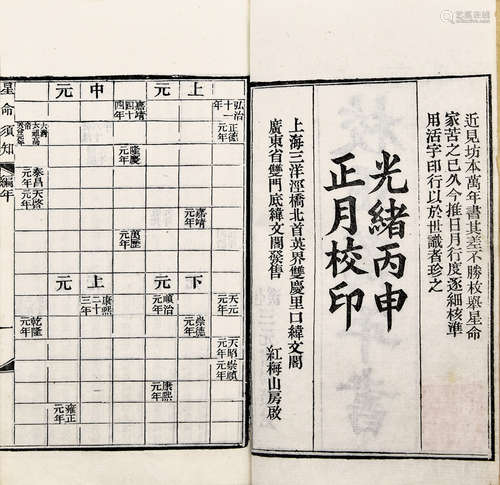 近見坊本萬年書其差不勝枚舉星命
家苦之已久今推日月行度逐細核準
用活字印行以於世識者珍之
光緒丙申
正月校印
上海三洋涇橋北首英界雙慶里口緯文閣
廣東省雙門底緯文閣發售
紅梅山房啟
上元
中元
弘治十一年
正德元年
嘉靖元年
嘉靖四十四年
隆慶元年
萬曆元年
泰昌元年
天啓元年
下元
上元
天元元年
天昭元年
崇禎元年
崇德元年
順治元年
康熙元年
康熙二十三年
雍正元年
乾隆元年
星命須知
編年
一